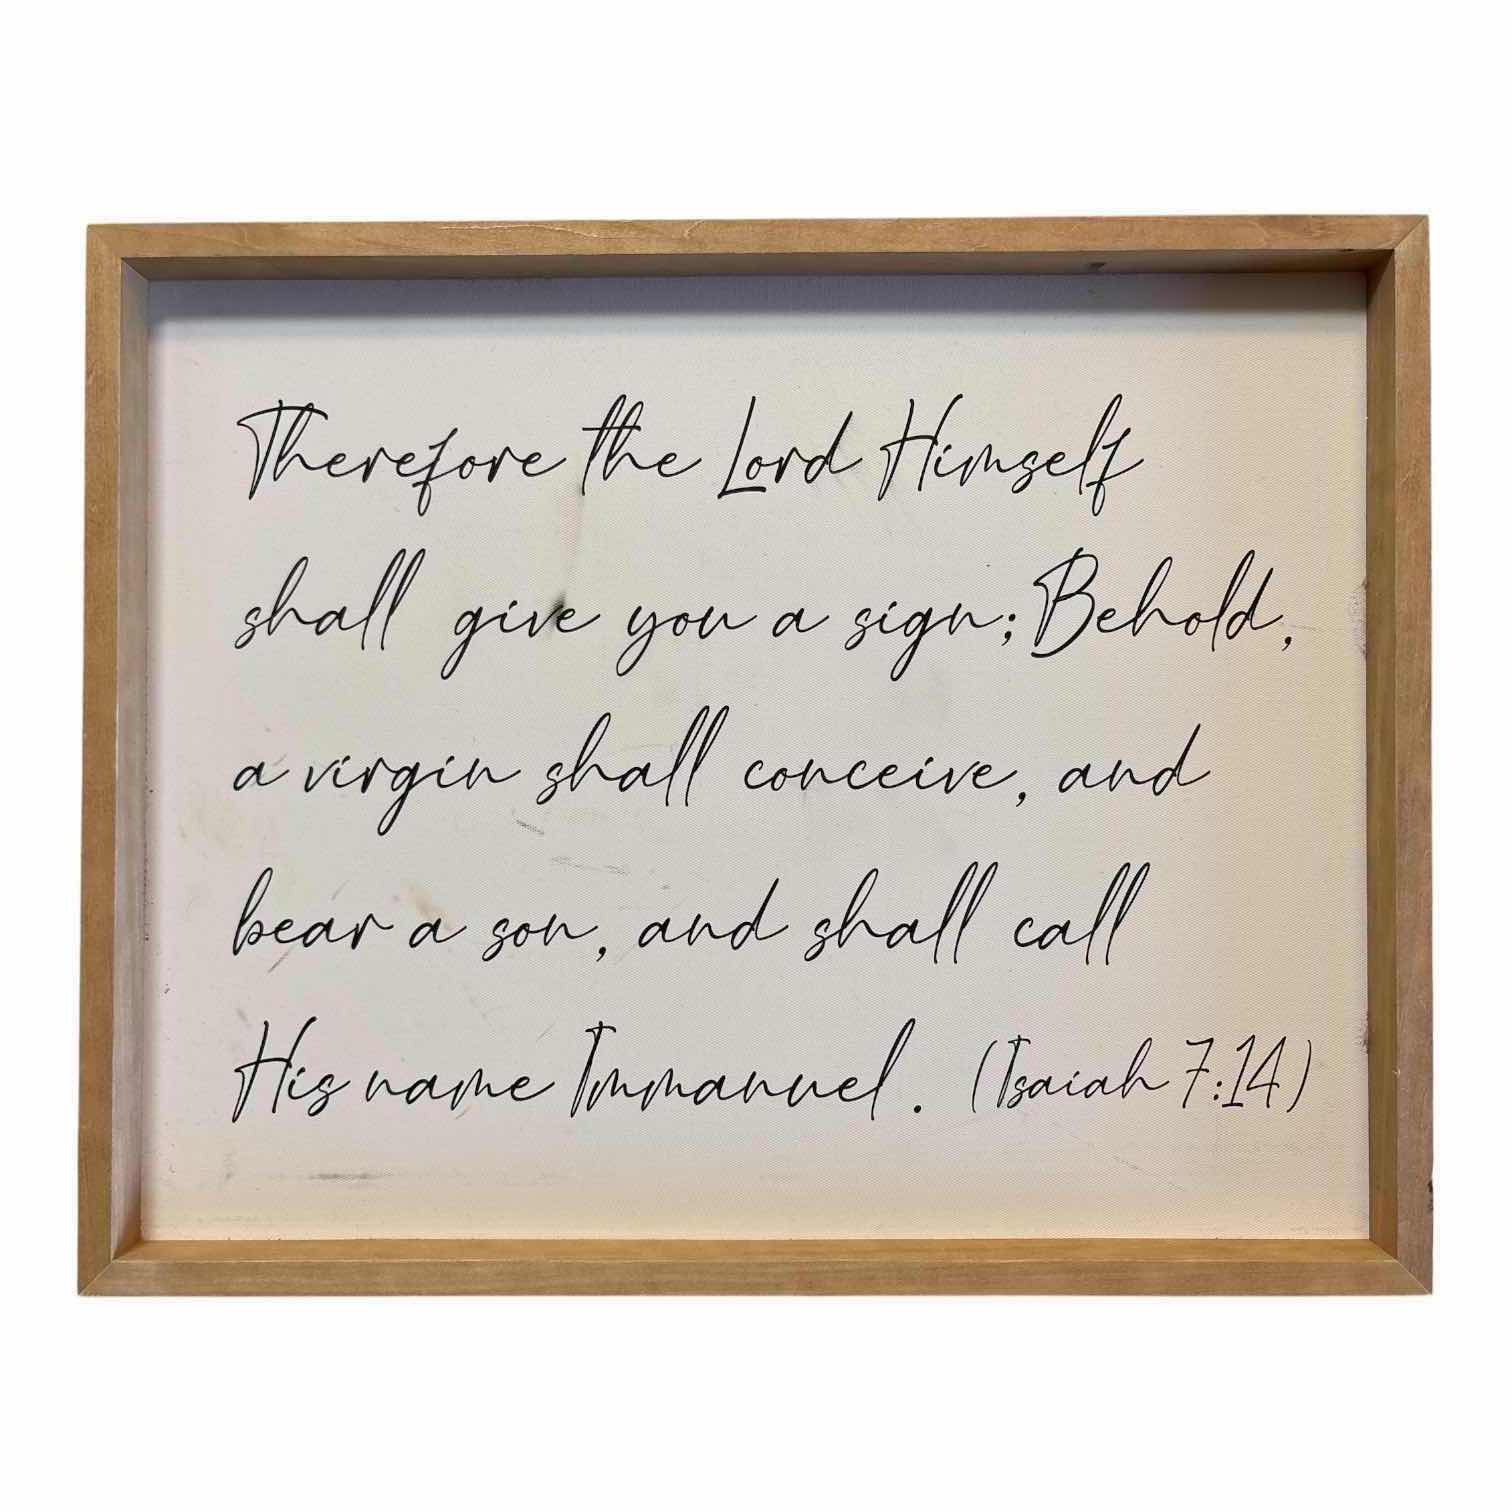 Therefore the Lord Himself
shall give you a sign; Behold,
a virgin shall conceive, and
bear a son, and shall call
His name Immanuel. (Isaiah 7:14)